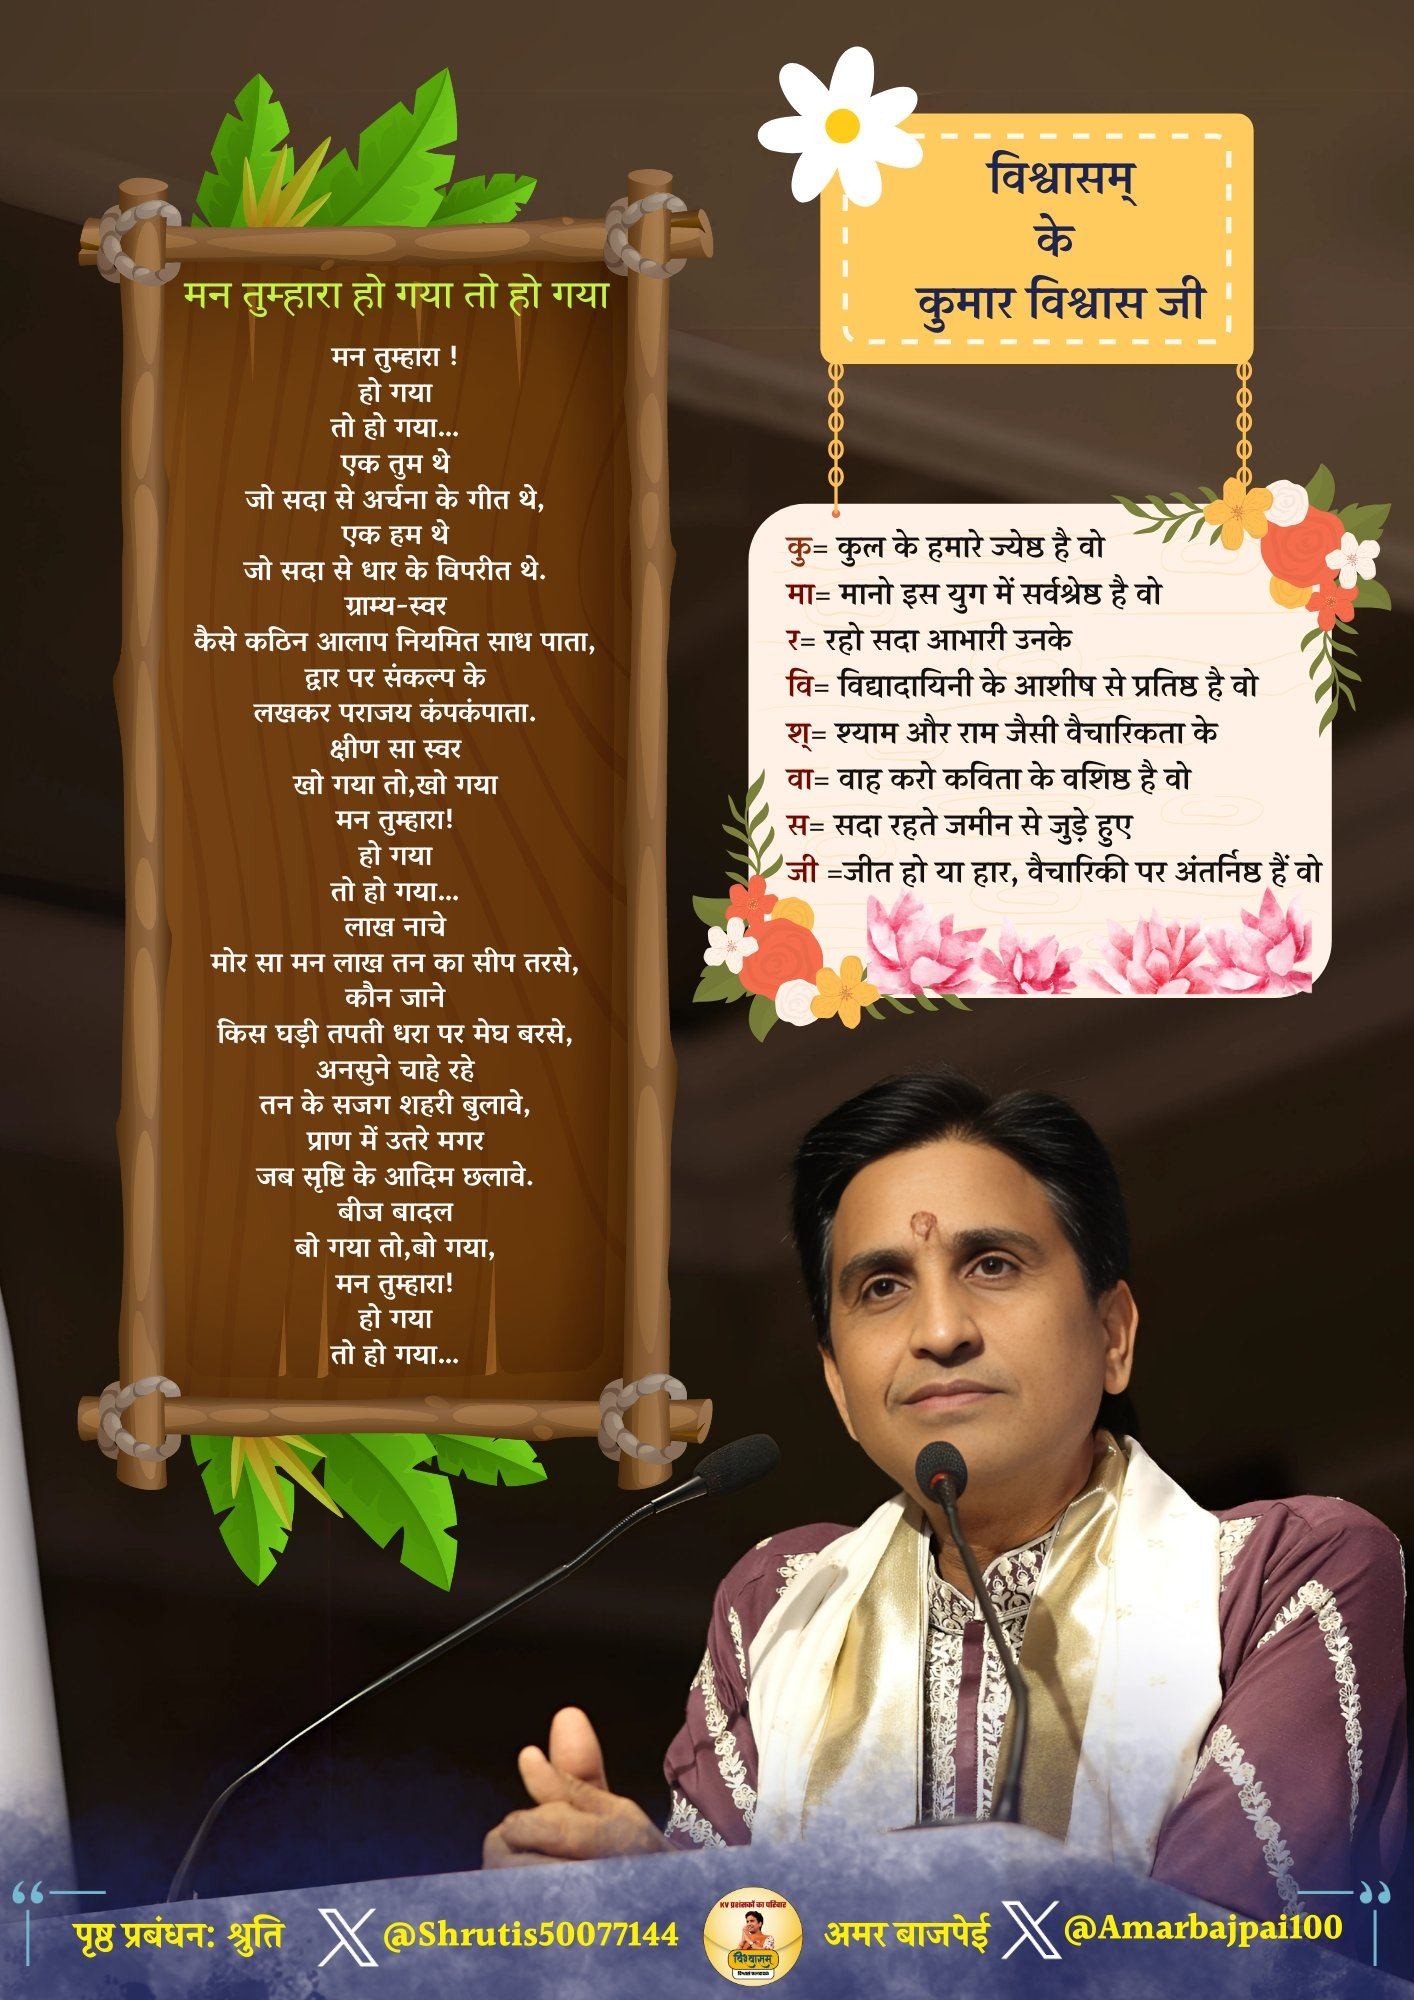 मन तुम्हारा हो गया तो हो गया
मन तुम्हारा !
हो गया
तो हो गया...
एक तुम थे
जो सदा से अर्चना के गीत थे,
एक हम थे
जो सदा से धार के विपरीत थे.
ग्राम्य-स्वर
कैसे कठिन आलाप नियमित साध पाता,
द्वार पर संकल्प के
लखकर पराजय कंपकंपाता.
क्षीण सा स्वर
खो गया तो,खो गया
मन तुम्हारा!
हो गया
तो हो गया...
लाख नाचे
मोर सा मन लाख तन का सीप तरसे,
कौन जाने
किस घड़ी तपती धरा पर मेघ बरसे,
अनसुने चाहे रहे
तन के सजग शहरी बुलावे,
प्राण में उतरे मगर
जब सृष्टि के आदिम छलावे.
बीज बादल
बो गया तो,बो गया,
मन तुम्हारा!
हो गया
तो हो गया...
विश्वासम्
के
कुमार विश्वास जी
कु= कुल के हमारे ज्येष्ठ है वो
मा= मानो इस युग में सर्वश्रेष्ठ है वो
र= रहो सदा आभारी उनके
वि= विद्यादायिनी के आशीष से प्रतिष्ठ है वो
श्= श्याम और राम जैसी वैचारिकता के
वा= वाह करो कविता के वशिष्ठ है वो
स= सदा रहते जमीन से जुड़े हुए
जी =जीत हो या हार, वैचारिकी पर अंतर्निष्ठ हैं वो
पृष्ठ प्रबंधन: श्रुति @Shrutis50077144
KV प्रशंसकों का परिवार
विश्वासम्
अमर बाजपेई @Amarbajpai100